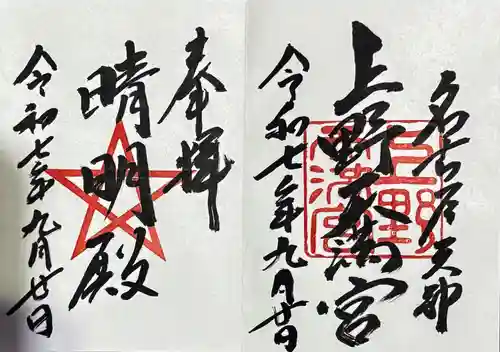 奉拝
晴明殿
令和七年九月廿日
名古屋天神
上野天満宮
令和七年九月廿日
上野天満宮